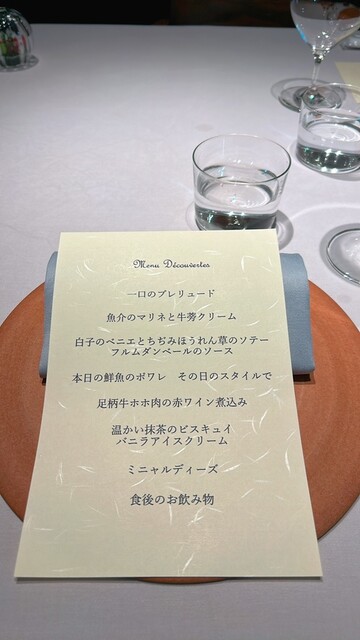 Menu Découvertes
一口のプレリュード
魚介のマリネと牛蒡クリーム
白子のベニエとちぢみほうれん草のソテー
フルムダンベールのソース
本日の鮮魚のポワレ　その日のスタイルで
足柄牛ホホ肉の赤ワイン煮込み
温かい抹茶のビスキュイ
バニラアイスクリーム
ミニャルディーズ
食後のお飲み物